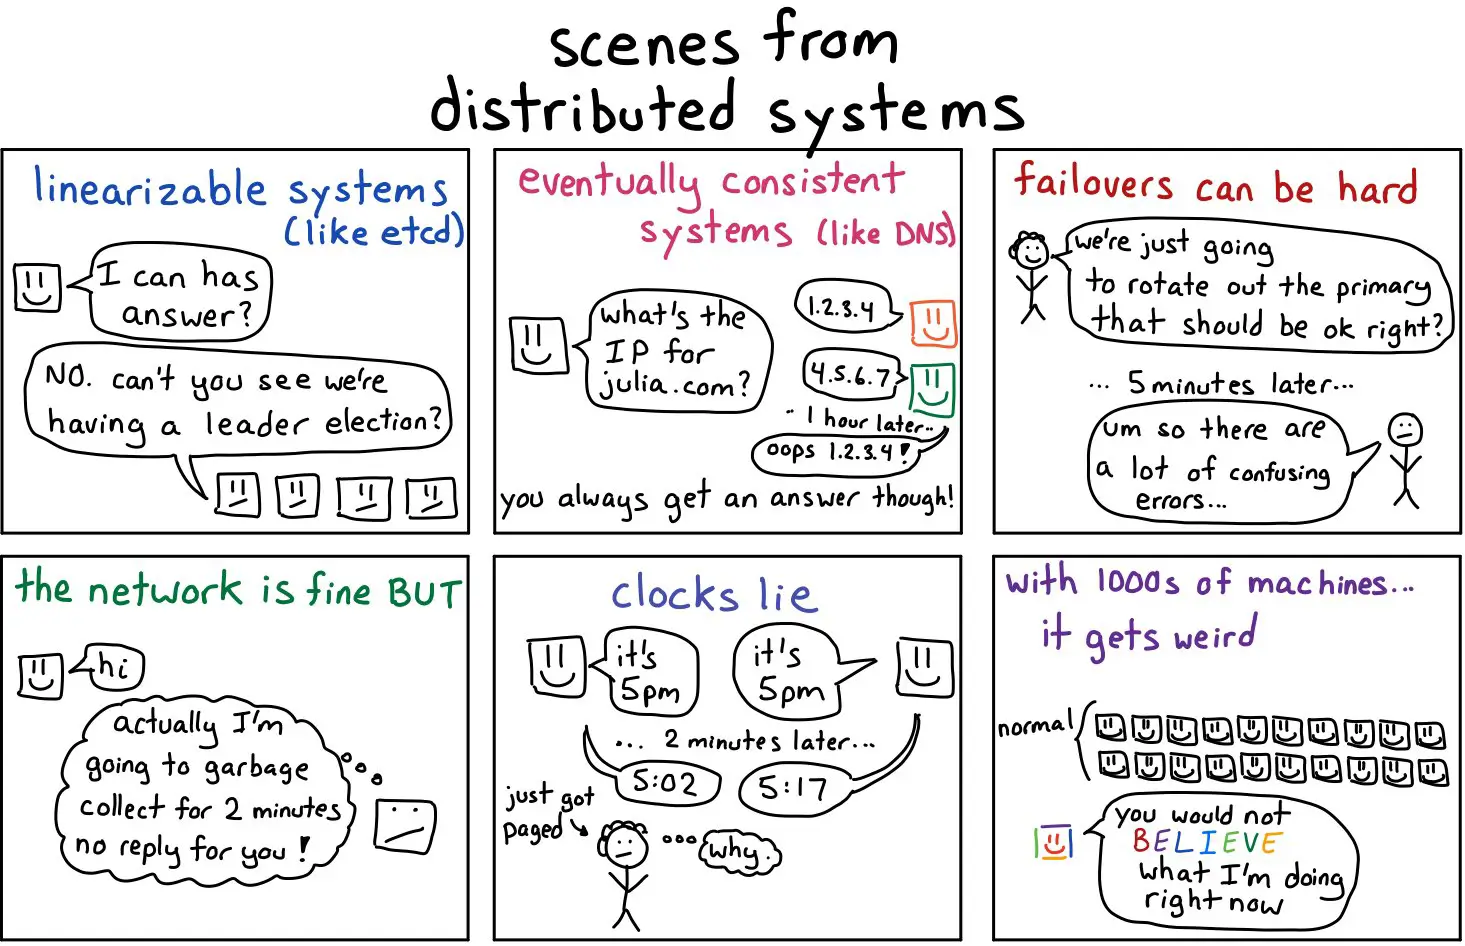 scenes from
distributed systems
linearizable systems
(like etcd)
I can has
answer?
NO. can't you see we're
having a leader election?
eventually consistent
systems (like DNS)
what's the
IP for
julia.com?
1.2.3.4
4.5.6.7
.. 1 hour later..
oops 1.2.3.4!
you always get an answer though!
failovers can be hard
we're just going
to rotate out the primary
that should be ok right?
... 5 minutes later...
um so there are
a lot of confusing
errors...
the network is fine BUT
hi
actually I'm
going to garbage
collect for 2 minutes
no reply for you!
clocks lie
it's
5pm
it's
5pm
... 2 minutes later...
5:02
5:17
just got
paged
why.
with 1000s of machines...
it gets weird
normal
you would not
BELIEVE
what I'm doing
right now